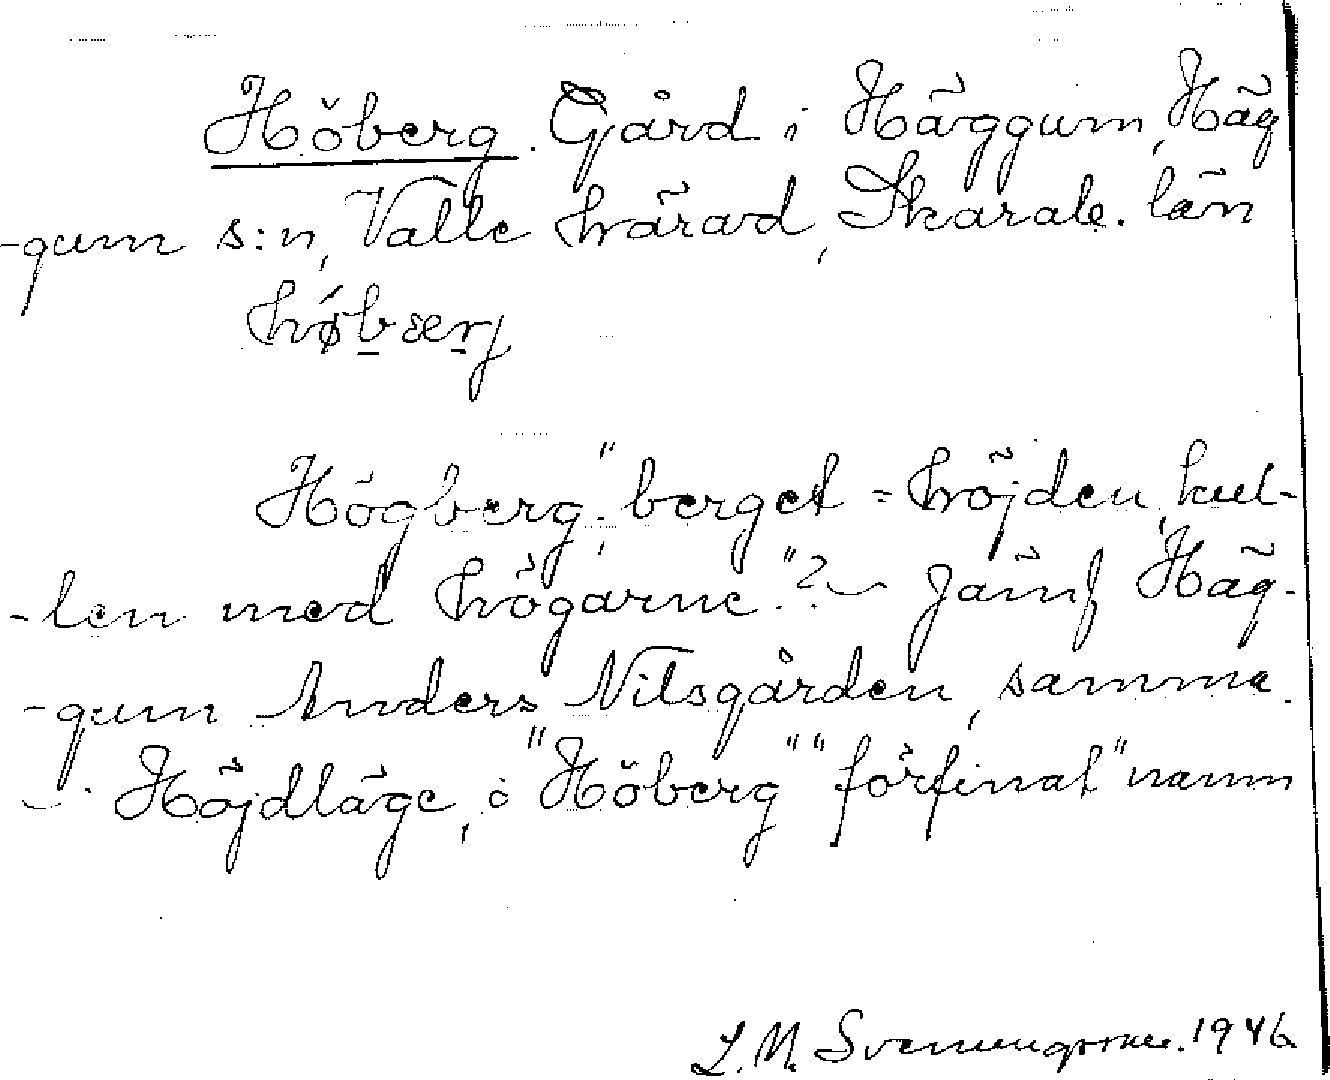 Höberg. Gård i Häggum, Häg
-gum s:n, Valle härad, Skarab. län
høbærj
Högberg; "berget = höjden, kul-
-len med högarne."? Jämf Häg-
-gum Anders Nilsgården, samma
Höjdläge, i "Höberg" "förfinat" namn
L. M. Svenungsson. 1946